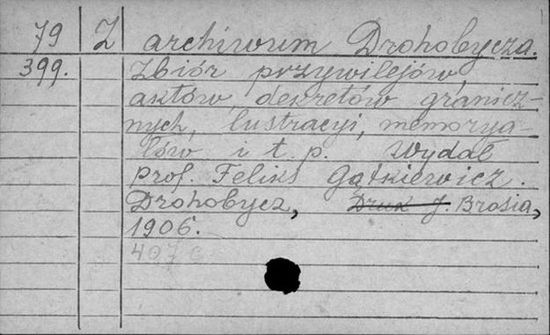 79 Z archiwum Drohobycza.
399. Zbiór przywilejów,
aktów, dekretów, granicz-
nych, lustracyi, memorya-
łów i t. p. Wydał
prof. Feliks Gątkiewicz.
Drohobycz, Druk J. Brosia,
1906.
407 c